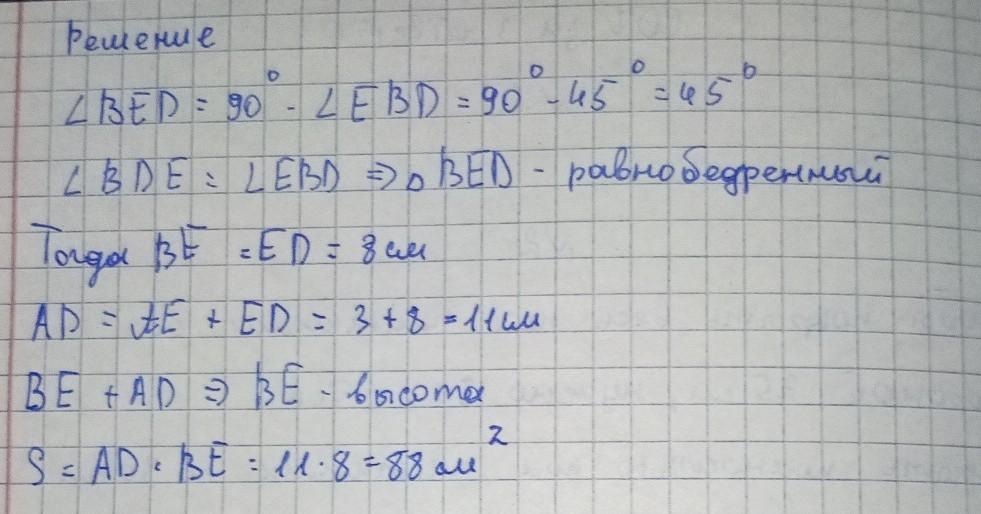 Решение
∠BED = 90° - ∠EBD = 90° - 45° = 45°
∠BDE = ∠EBD ⇒ △BED - равнобедренный
Тогда BE = ED = 8 см
AD = AE + ED = 3 + 8 = 11 см
BE + AD ⇒ BE - высота
S = AD · BE = 11 · 8 = 88 см²